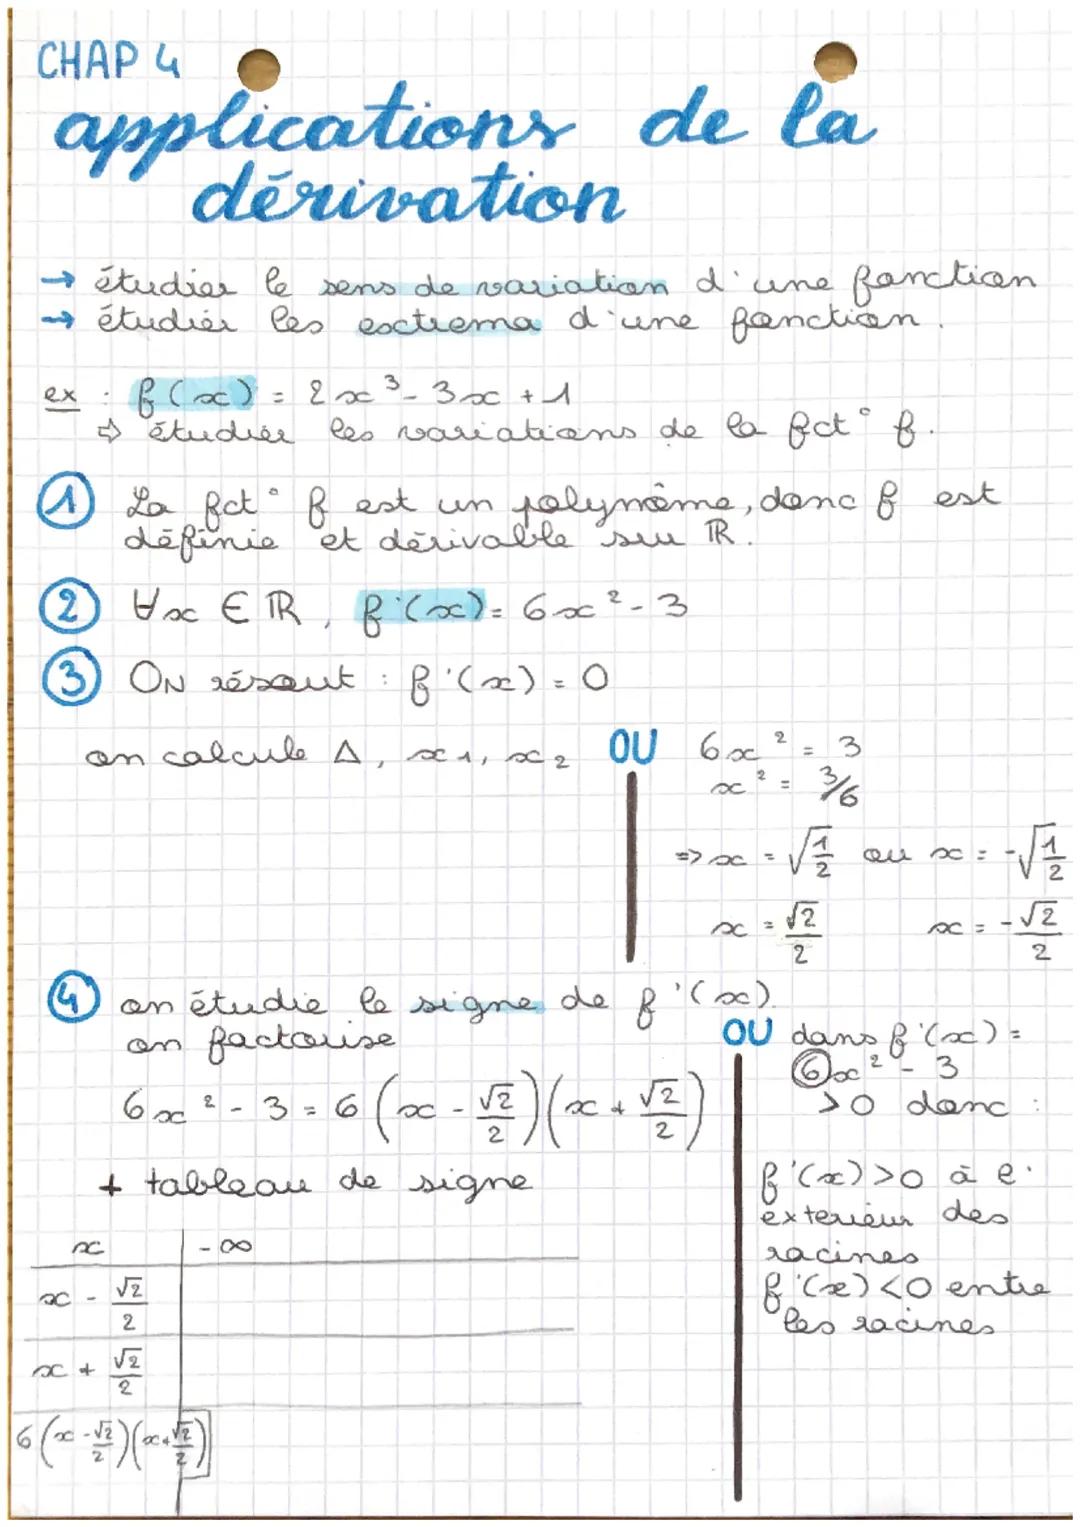 CHAP 4
applications de la
dérivation
→ étudier le sens de variation d'une fonction
→ étudier les extrema d'une fonction.
ex : f(x) = 2x³ - 3x + 1
⇨ étudier les variations de la fct° f.
① La fct° f est un polynôme, donc f est
définie et dérivable sur ℝ.
② ∀x ∈ ℝ, f'(x) = 6x² - 3
③ ON résout : f'(x) = 0
on calcule Δ, x1, x2
OU
6x² = 3
x² = 3/6
=> x = √(1/2) ou x = -√(1/2)
x = √2/2 x = -√2/2
④ on étudie le signe de f'(x).
on factorise
6x² - 3 = 6(x - √2/2)(x + √2/2)
+ tableau de signe
x -∞
x - √2/2
x + √2/2
6(x - √2/2)(x + √2/2)
OU dans f'(x) =
6x² - 3
>0 donc :
f'(x)>0 à l'
exterieur des
racines
f'(x)<0 entre
les racines